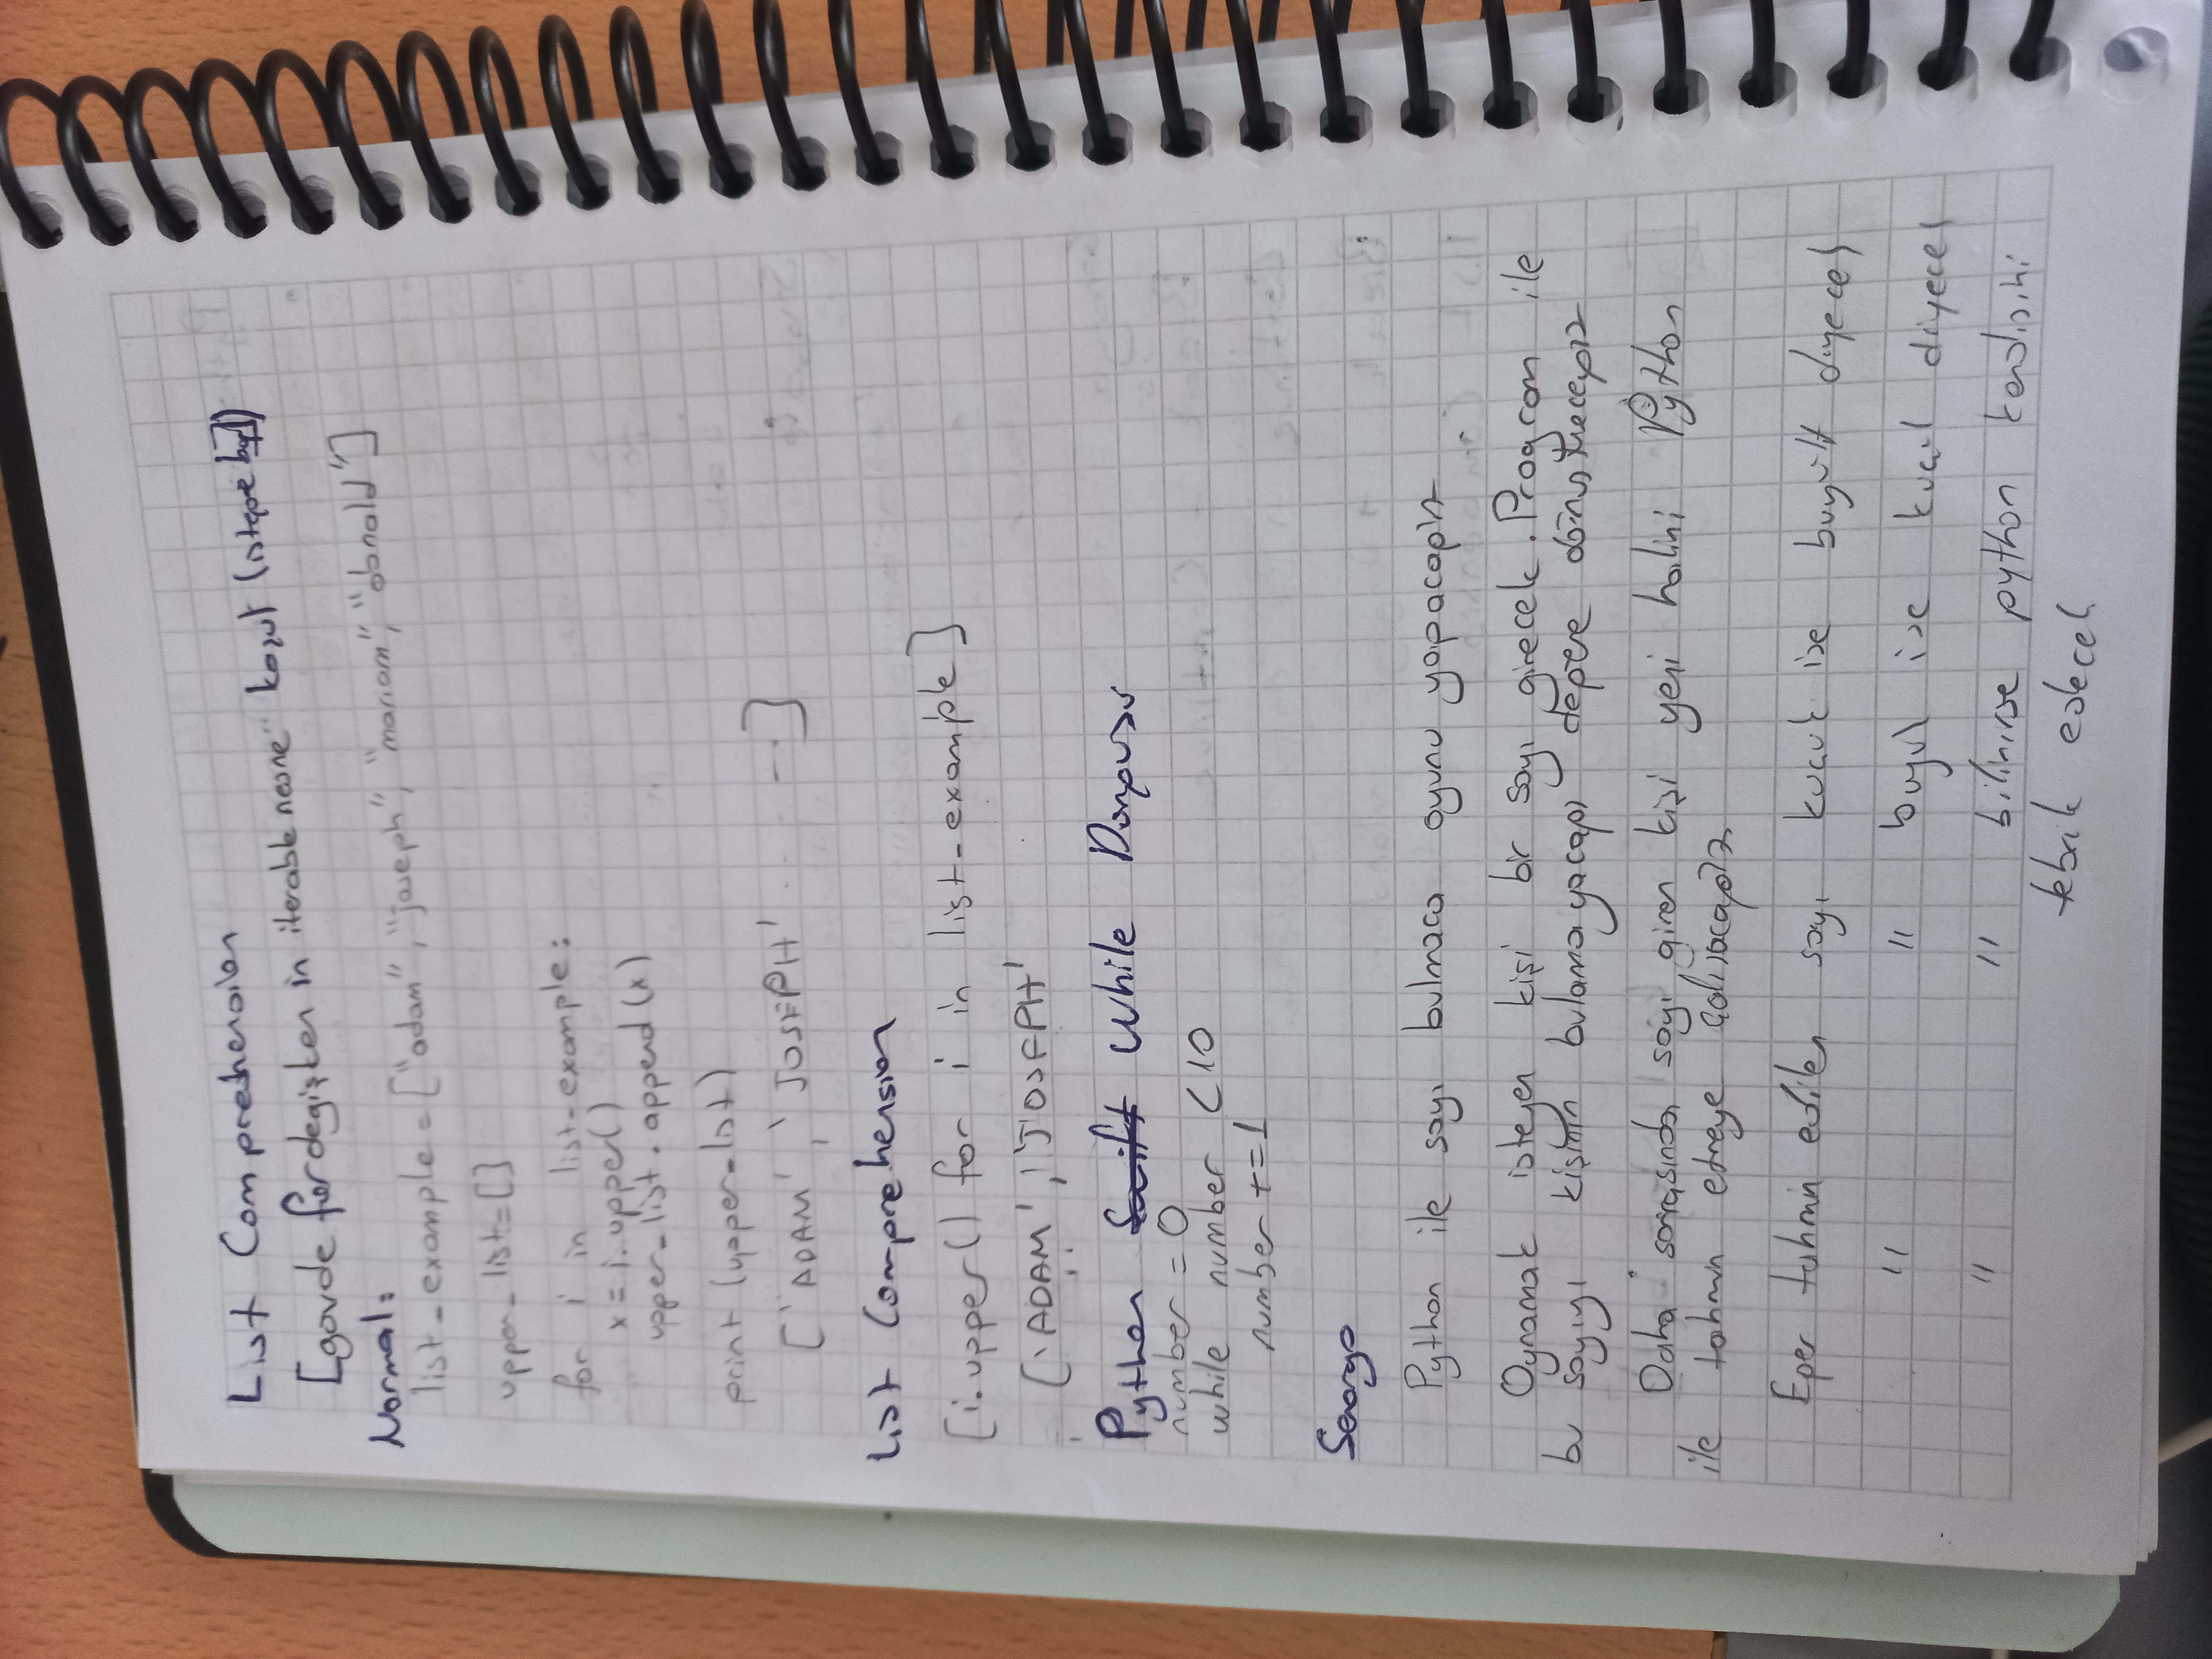 List Comprehension
[govde for degişken in iterable nesne koşul (isteğe bağlı)]
Normal:
list_example = ["adam", "joseph", "mariam", "donald"]
upper_list=[]
for i in list_example:
x = i.upper()
upper_list.append(x)
print (upper_list)
['ADAM', 'JOSEPH' ... --]
List Comprehension
[i.upper() for i in list_example]
['ADAM', 'JOSEPH'
Python Swift While Dongusu
number = 0
while number < 10
number += 1
Senaryo
Python ile sayı bulmaca oyunu yapacağız
Oynamak isteyen kişi bir sayı girecek. Program ile
bu sayıyı kişinin bulamayacağı değere dönüştüreceğiz
Daha sonrasında sayı giren kişi yeni halini Python
ile tahmin etmeye çalışacağız
Eğer tahmin edilen sayı kucuk ise buyult diyecek
" " buyuk ise kucult diyecek
" " bilinirse python kendisini
tebrik edecek